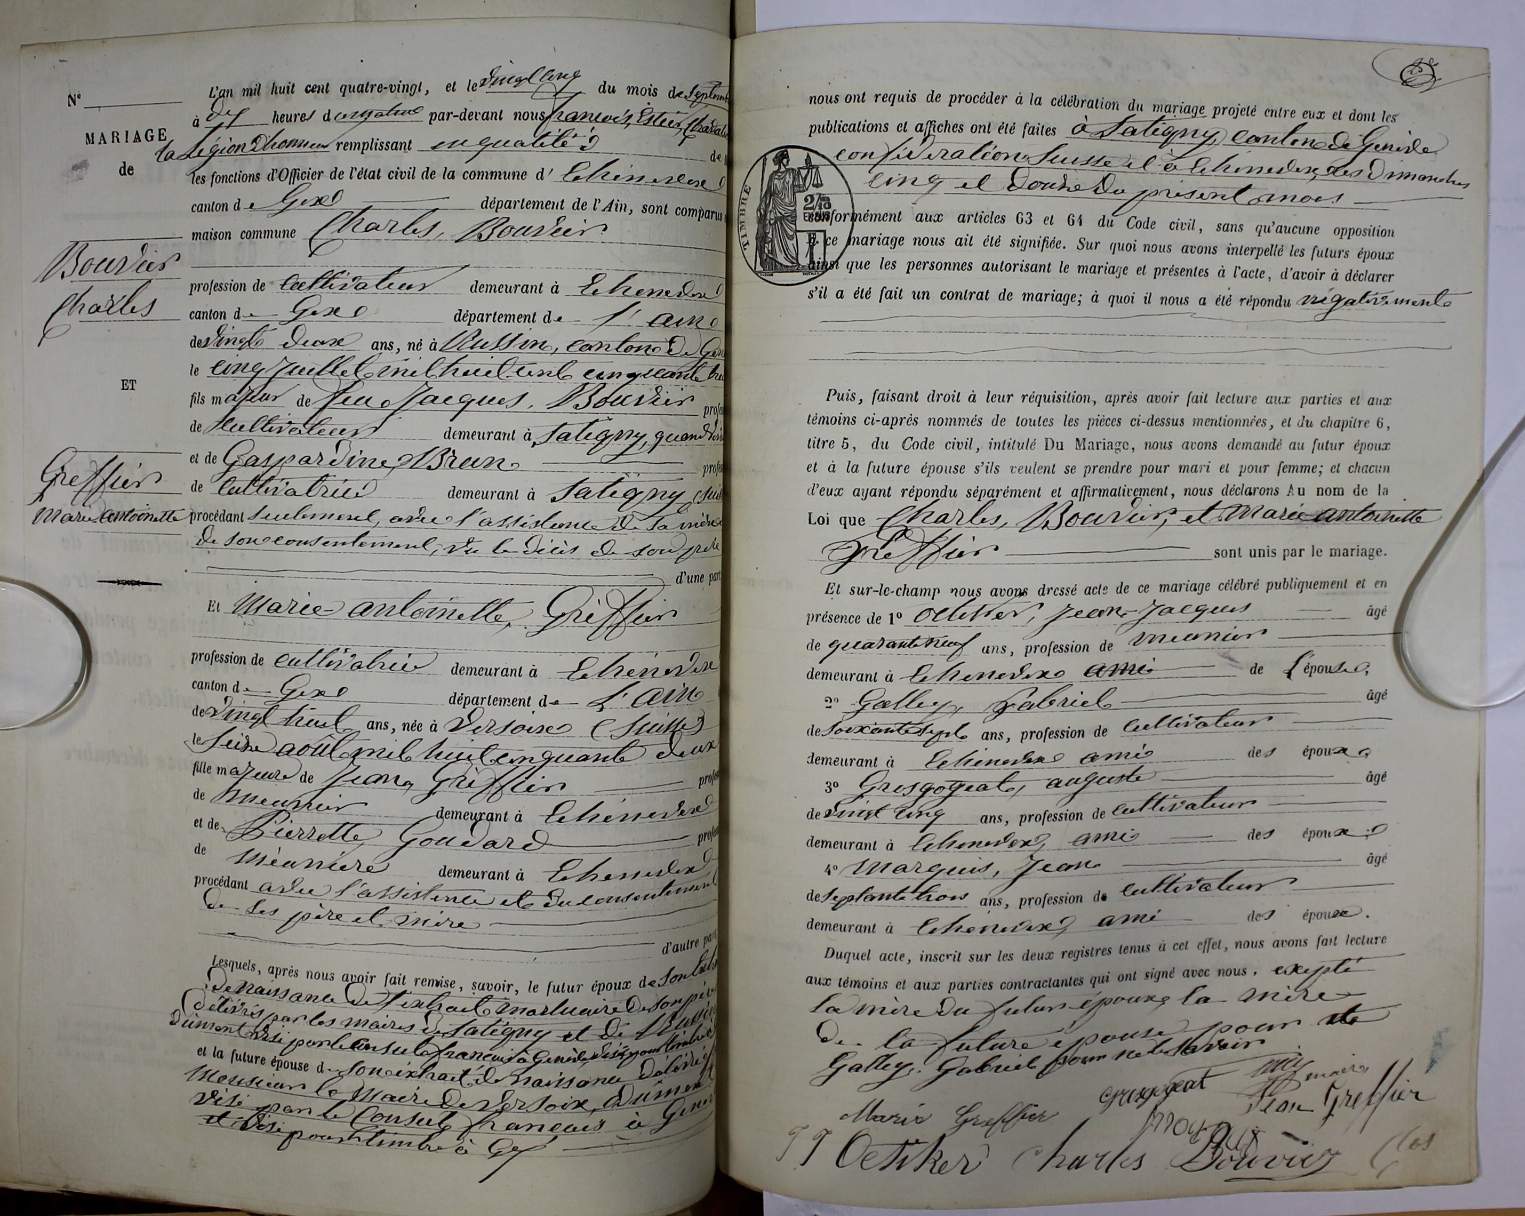 Nº
MARIAGE
de
Bouvier
Charles
ET
Greffier
Marie Antoinette
L'an mil huit cent quatre-vingt, et le vingt cinq du mois de Septembre
à dix heures du matin par-devant nous françois, 
la Légion d'honneur remplissant en qualité d de
les fonctions d'Officier de l'état civil de la commune d' Echenevex
canton de Gex département de l'Ain, sont comparus
maison commune Charles, Bouvier
profession de Cultivateur demeurant à Echenevex
canton de Gex département de l'ain
de vingt deux ans, né à Russin, canton de Gen
le cinq Juillet mil huit cent cinquante
fils majeur de feu Jacques, Bouvier profes
de Cultivateur demeurant à Satigny, quand
et de Gaspardine Brun profes
de Cultivatrice demeurant à Satigny (sui
procédant seulement, avec l'assistance de sa mère
de son consentement, vu le décès de son père
d'une part
Et Marie antoinette, Greffier
profession de cultivatrice demeurant à Echenevex
canton de Gex département de L'ain
de vingt huit ans, née à Versoix (Suisse)
le seize août mil huit cinquante deux
fille majeure de Jean, Greffier profes
de Meunier demeurant à Echenevex
et de Pierrette Goudard profes
de Meunière demeurant à Echenevex
procédant avec l'assistance et du consentement
de ses père et mère
d'autre part
Lesquels, après nous avoir fait remise, savoir, le futur époux de son
de naissance de l'extrait mortuaire de son père
délivrés par les maires de Satigny et de Russin
dûment visé par le Consul français à Genève, visés pour timbre
et la future épouse de son extrait de naissance délivré
Monsieur le Maire de Versoix, dûment
visé par le Consul français à Genè
et visé pour timbre à Gex
nous ont requis de procéder à la célébration du mariage projeté entre eux et dont les
publications et affiches ont été faites à Satigny, canton de Genève
confédération Suisse et à Echenevex, les Dimanches
cinq et douze du présent mois
TIMBRE
conformément aux articles 63 et 64 du Code civil, sans qu'aucune opposition
à ce mariage nous ait été signifiée. Sur quoi nous avons interpellé les futurs époux
ainsi que les personnes autorisant le mariage et présentes à l'acte, d'avoir à déclarer
s'il a été fait un contrat de mariage; à quoi il nous a été répondu négativement
Puis, faisant droit à leur réquisition, après avoir fait lecture aux parties et aux
témoins ci-après nommés de toutes les pièces ci-dessus mentionnées, et du chapitre 6,
titre 5, du Code civil, intitulé Du Mariage, nous avons demandé au futur époux
et à la future épouse s'ils veulent se prendre pour mari et pour femme; et chacun
d'eux ayant répondu séparément et affirmativement, nous déclarons Au nom de la
Loi que Charles, Bouvier, et Marie antoinette
Greffier sont unis par le mariage.
Et sur-le-champ nous avons dressé acte de ce mariage célébré publiquement et en
présence de 1º Oetiker, Jean-Jacques âgé
de quarante neuf ans, profession de meunier
demeurant à Echenevex ami de l'épouse;
2º Galley, Gabriel âgé
de soixante sept ans, profession de cultivateur
demeurant à Echenevex ami des époux
3º Grosgogeat, auguste âgé
de vingt cinq ans, profession de cultivateur
demeurant à Echenevex, ami des époux;
4º Marquis, Jean âgé
de septante trois ans, profession de cultivateur
demeurant à Echenevex, ami des époux.
Duquel acte, inscrit sur les deux registres tenus à cet effet, nous avons fait lecture
aux témoins et aux parties contractantes qui ont signé avec nous, excepté
la mère du futur époux, la mère
de la future épouse pour
Galley, Gabriel pour ne le savoir
maire
Marie Greffier
Jean Greffier
Oetiker Charles Bouvier